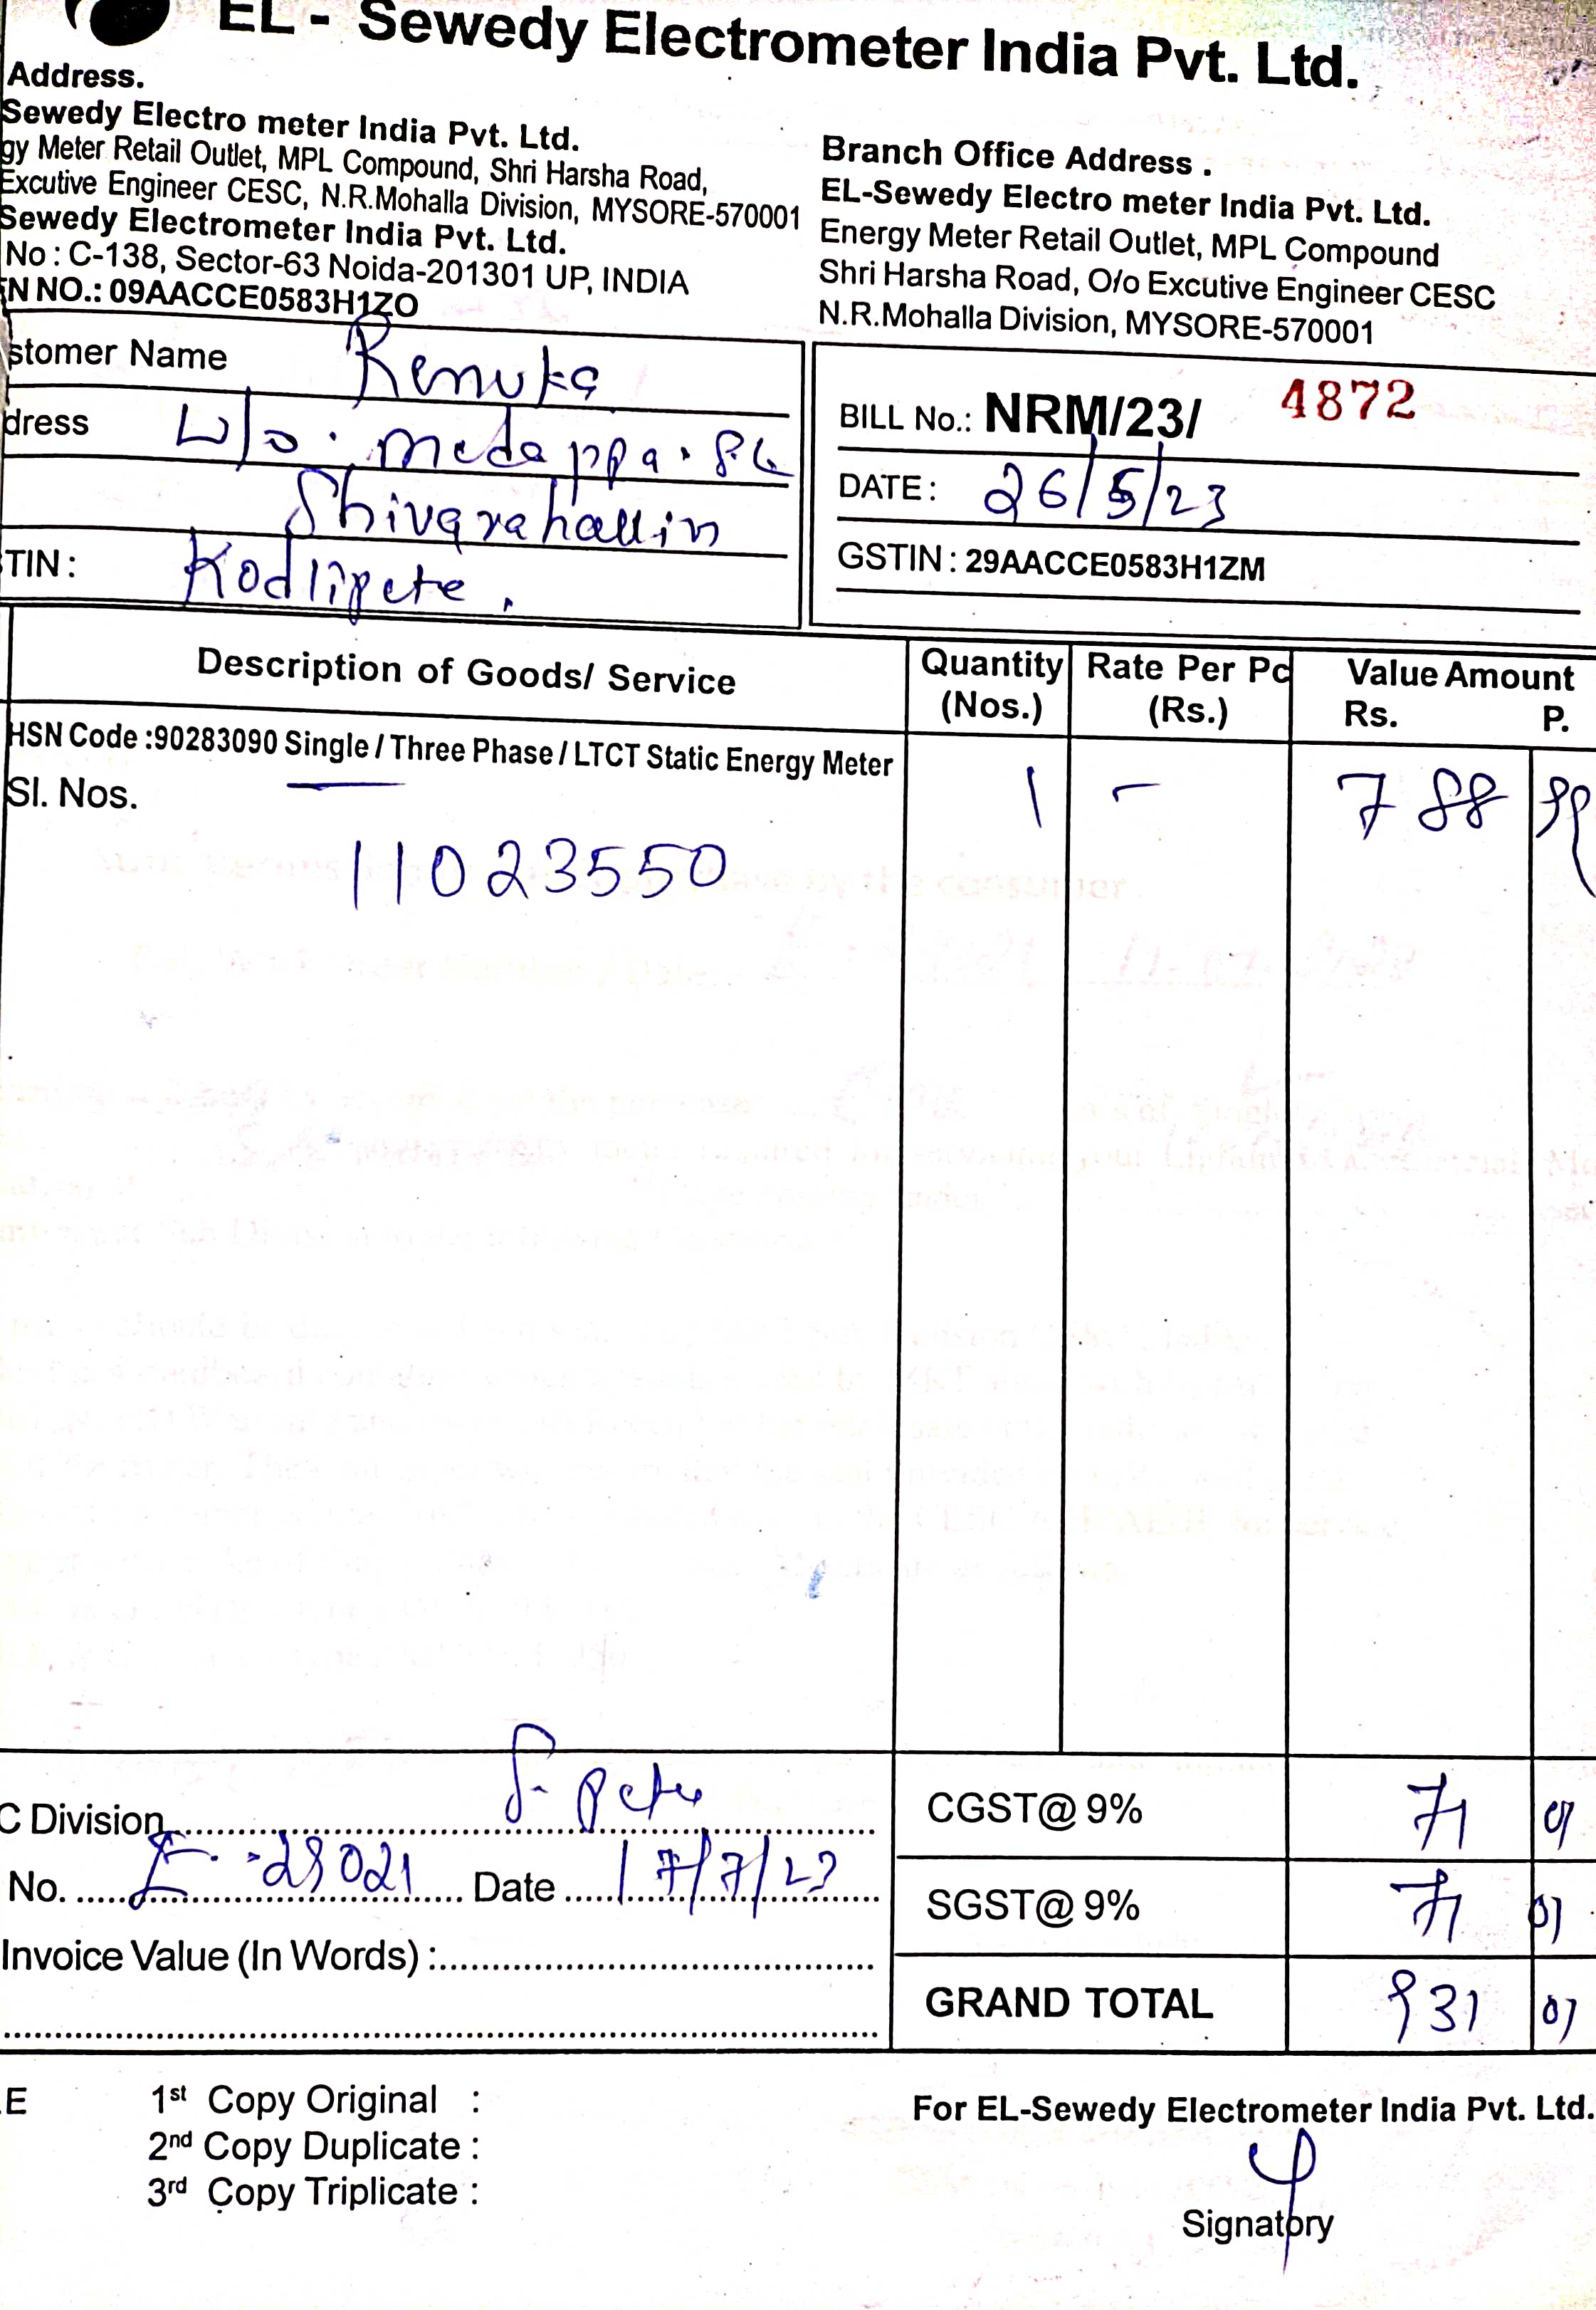 EL - Sewedy Electrometer India Pvt. Ltd.
Address.
Sewedy Electro meter India Pvt. Ltd.
gy Meter Retail Outlet, MPL Compound, Shri Harsha Road,
Excutive Engineer CESC, N.R.Mohalla Division, MYSORE-570001
Sewedy Electrometer India Pvt. Ltd.
No : C-138, Sector-63 Noida-201301 UP, INDIA
N NO.: 09AACCE0583H1ZO
Branch Office Address .
EL-Sewedy Electro meter India Pvt. Ltd.
Energy Meter Retail Outlet, MPL Compound
Shri Harsha Road, O/o Excutive Engineer CESC
N.R.Mohalla Division, MYSORE-570001
stomer Name Renuka
dress W/o. Medappa.
Shivarahalli
TIN : Kodlipete.
BILL No.: NRM/23/ 4872
DATE : 26/5/23
GSTIN : 29AACCE0583H1ZM
Description of Goods/ Service Quantity (Nos.) Rate Per Pc (Rs.) Value Amount Rs. P.
HSN Code :90283090 Single / Three Phase / LTCT Static Energy Meter 1 - 788 99
Sl. Nos.
11023550
C Division S. Pete
No. 28021 Date 17/7/23
Invoice Value (In Words) :
CGST@ 9% 71 01
SGST@ 9% 71 01
GRAND TOTAL 931 01
E
1st Copy Original :
2nd Copy Duplicate :
3rd Copy Triplicate :
For EL-Sewedy Electrometer India Pvt. Ltd.
Signatory